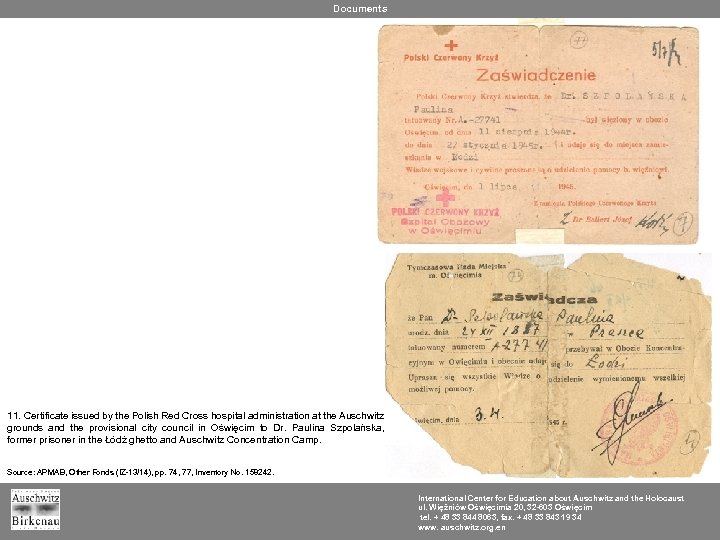 Documents
77
5/7/
Polski Czerwony Krzyż
Zaświadczenie
Polski Czerwony Krzyż stwierdza, że Dr. SZPOLAŃSKA
Paulina
tatuowany Nr. A.-27741 był więziony w obozie
Oświęcim, od dnia 11 sierpnia 1944r.
do dnia 27 stycznia 1945r. i udaje się do miejsca zamie-
szkania w Łodzi
Władze wojskowe i cywilne proszone są o udzielenie pomocy b. więźniowi.
Oświęcim, dn. 1 lipca 1945.
Z ramienia Polskiego Czerwonego Krzyża
POLSKI CZERWONY KRZYŻ
Szpital Obozowy
w Oświęcimiu
Dr Bellert Józef
Tymczasowa Rada Miejska
m. Oświęcimia
Zaświadcza
że Pan Dr Paulina
urodz. dnia 24 XII 1887 w
tatuowany numerem A-27741 przebywał w Obozie Koncentra-
cyjnym w Oświęcimiu i obecnie udaje się do Łodzi
Uprasza się wszystkie Władze o udzielenie wymienionemu wszelkiej
możliwej pomocy.
Oświęcim, dnia 3.4. 1945 r.
11. Certificate issued by the Polish Red Cross hospital administration at the Auschwitz
grounds and the provisional city council in Oświęcim to Dr. Paulina Szpolańska,
former prisoner in the Łódź ghetto and Auschwitz Concentration Camp.
Source: APMAB, Other Fonds (IZ-13/14), pp. 74, 77, Inventory No. 159242.
Auschwitz
Birkenau
International Center for Education about Auschwitz and the Holocaust
ul. Więźniów Oświęcimia 20, 32-603 Oświęcim
tel. + 48 33 844 8063, fax. + 48 33 843 19 34
www. auschwitz.org.en